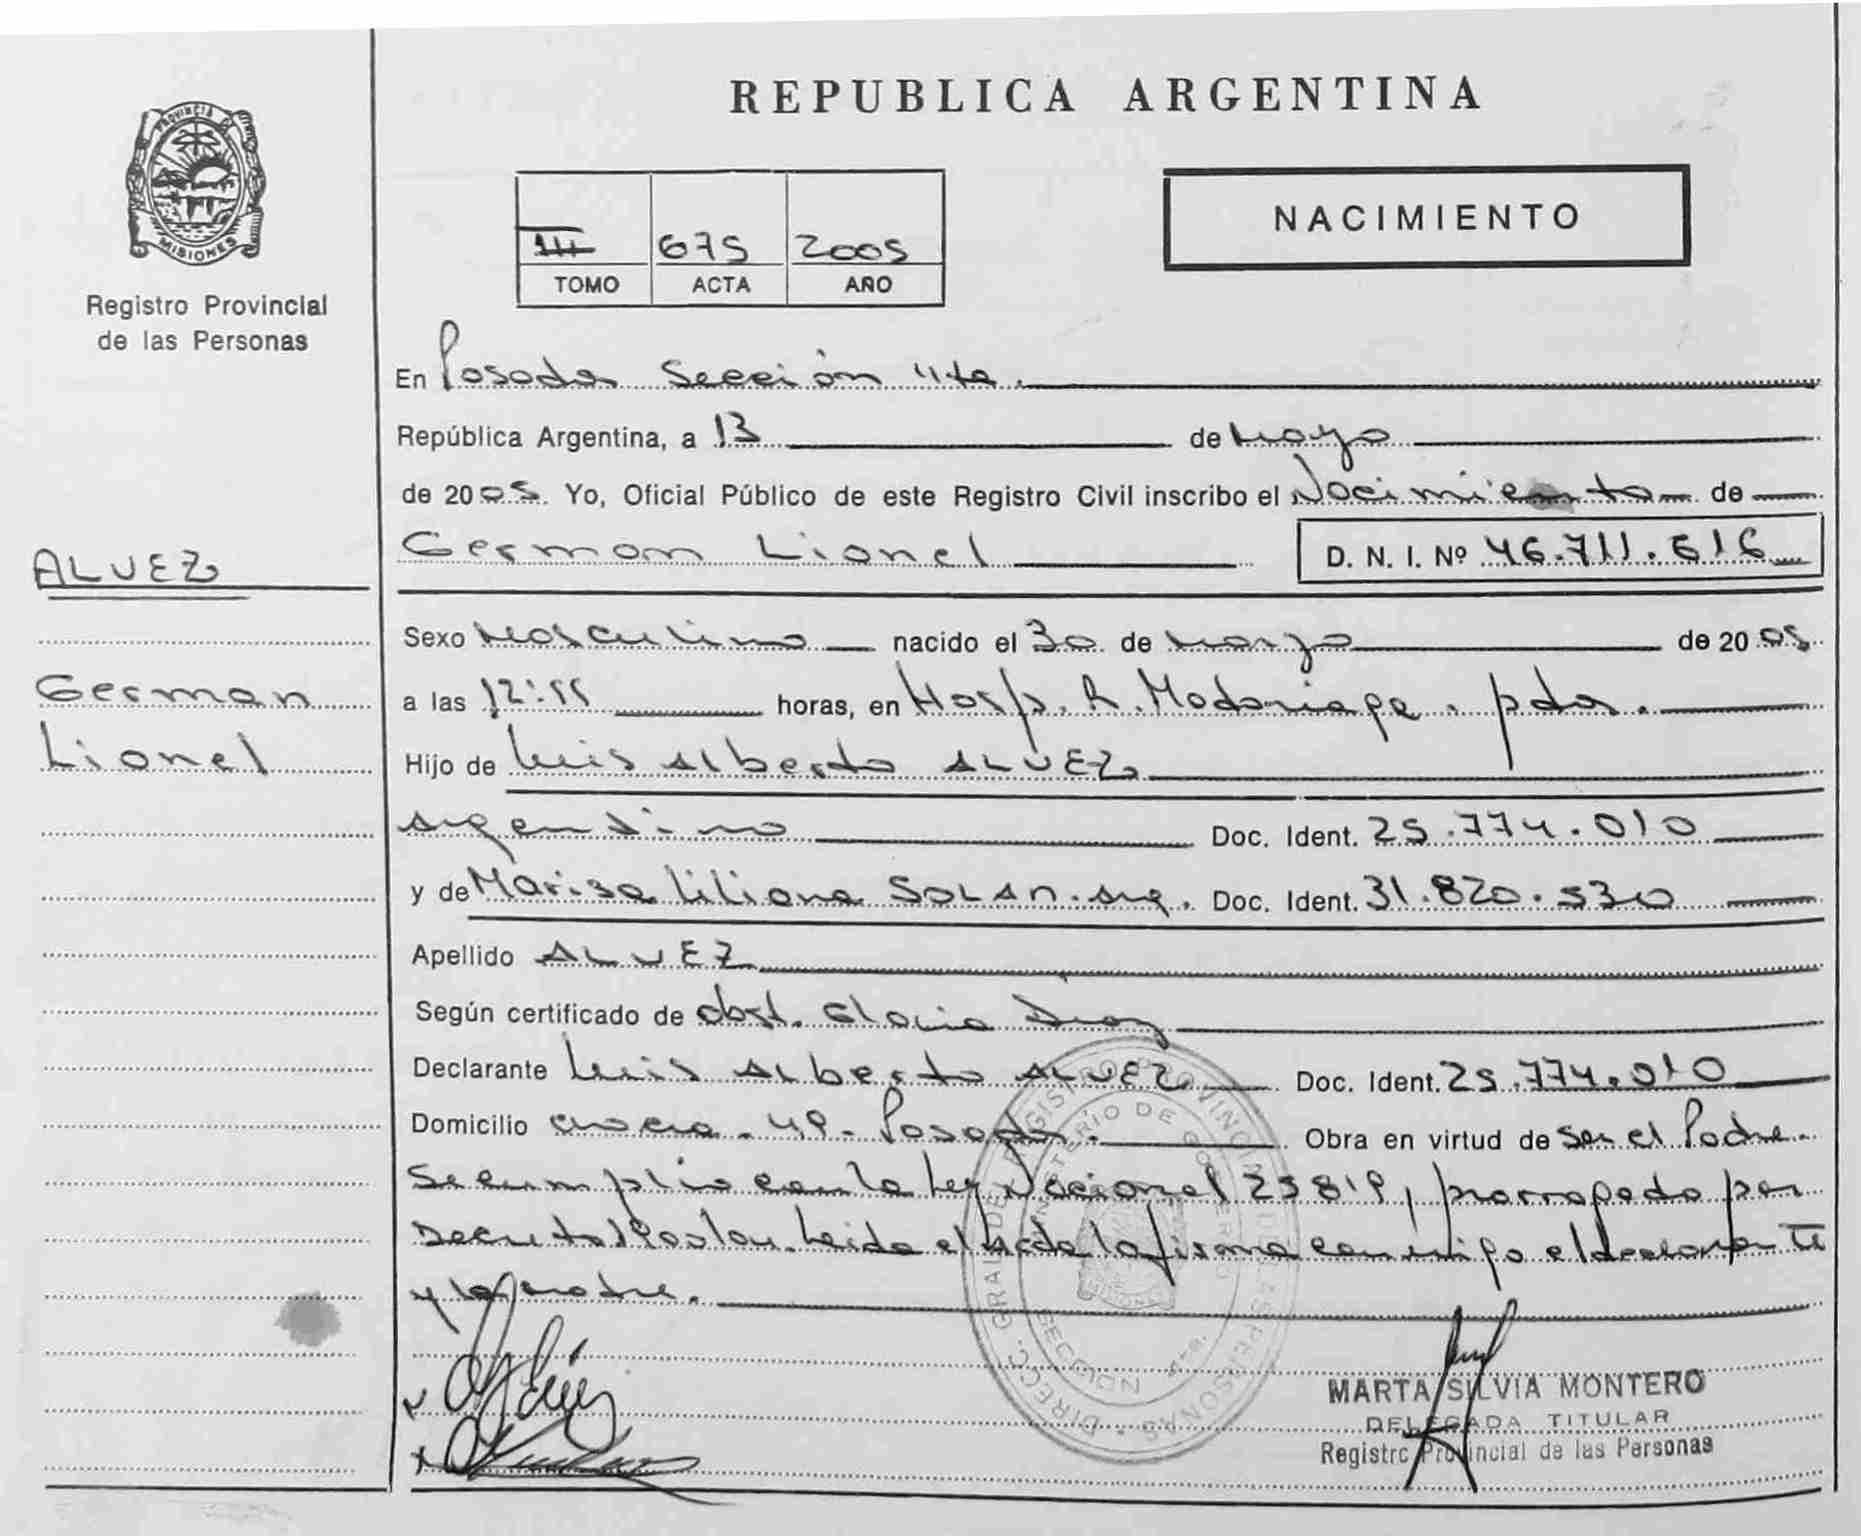 REPUBLICA ARGENTINA
PROVINCIA DE MISIONES
Registro Provincial
de las Personas
NACIMIENTO
III 675 2005
TOMO ACTA AÑO
En Posadas Sección 4ta.
República Argentina, a 13 de Mayo
de 2005. Yo, Oficial Público de este Registro Civil inscribo el Nacimiento de
German Lionel D. N. I. Nº 46.711.616
ALVEZ
German
Lionel
Sexo Masculino nacido el 30 de marzo de 2005
a las 12:55 horas, en Hosp. R. Madariaga. pdas.
Hijo de Luis Alberto ALVEZ
argentino Doc. Ident. 25.774.010
y de Marisa Liliana SOLAN. arg. Doc. Ident. 31.820.530
Apellido ALVEZ
Según certificado de obst. Gloria Diaz
Declarante Luis Alberto ALVEZ Doc. Ident. 25.774.010
Domicilio Posadas. Obra en virtud de ser el Padre.
Se cumplio con la Ley Nacional 25819, prorrogado por
Decreto Leida el Acta la firma conmigo el declarante
y la madre.
DIREC. GRAL. DEL REGISTRO PROVINCIAL DE LAS PERSONAS
MINISTERIO DE GOBIERNO
SECCION 4TA.
MARTA SILVIA MONTERO
DELEGADA TITULAR
Registro Provincial de las Personas